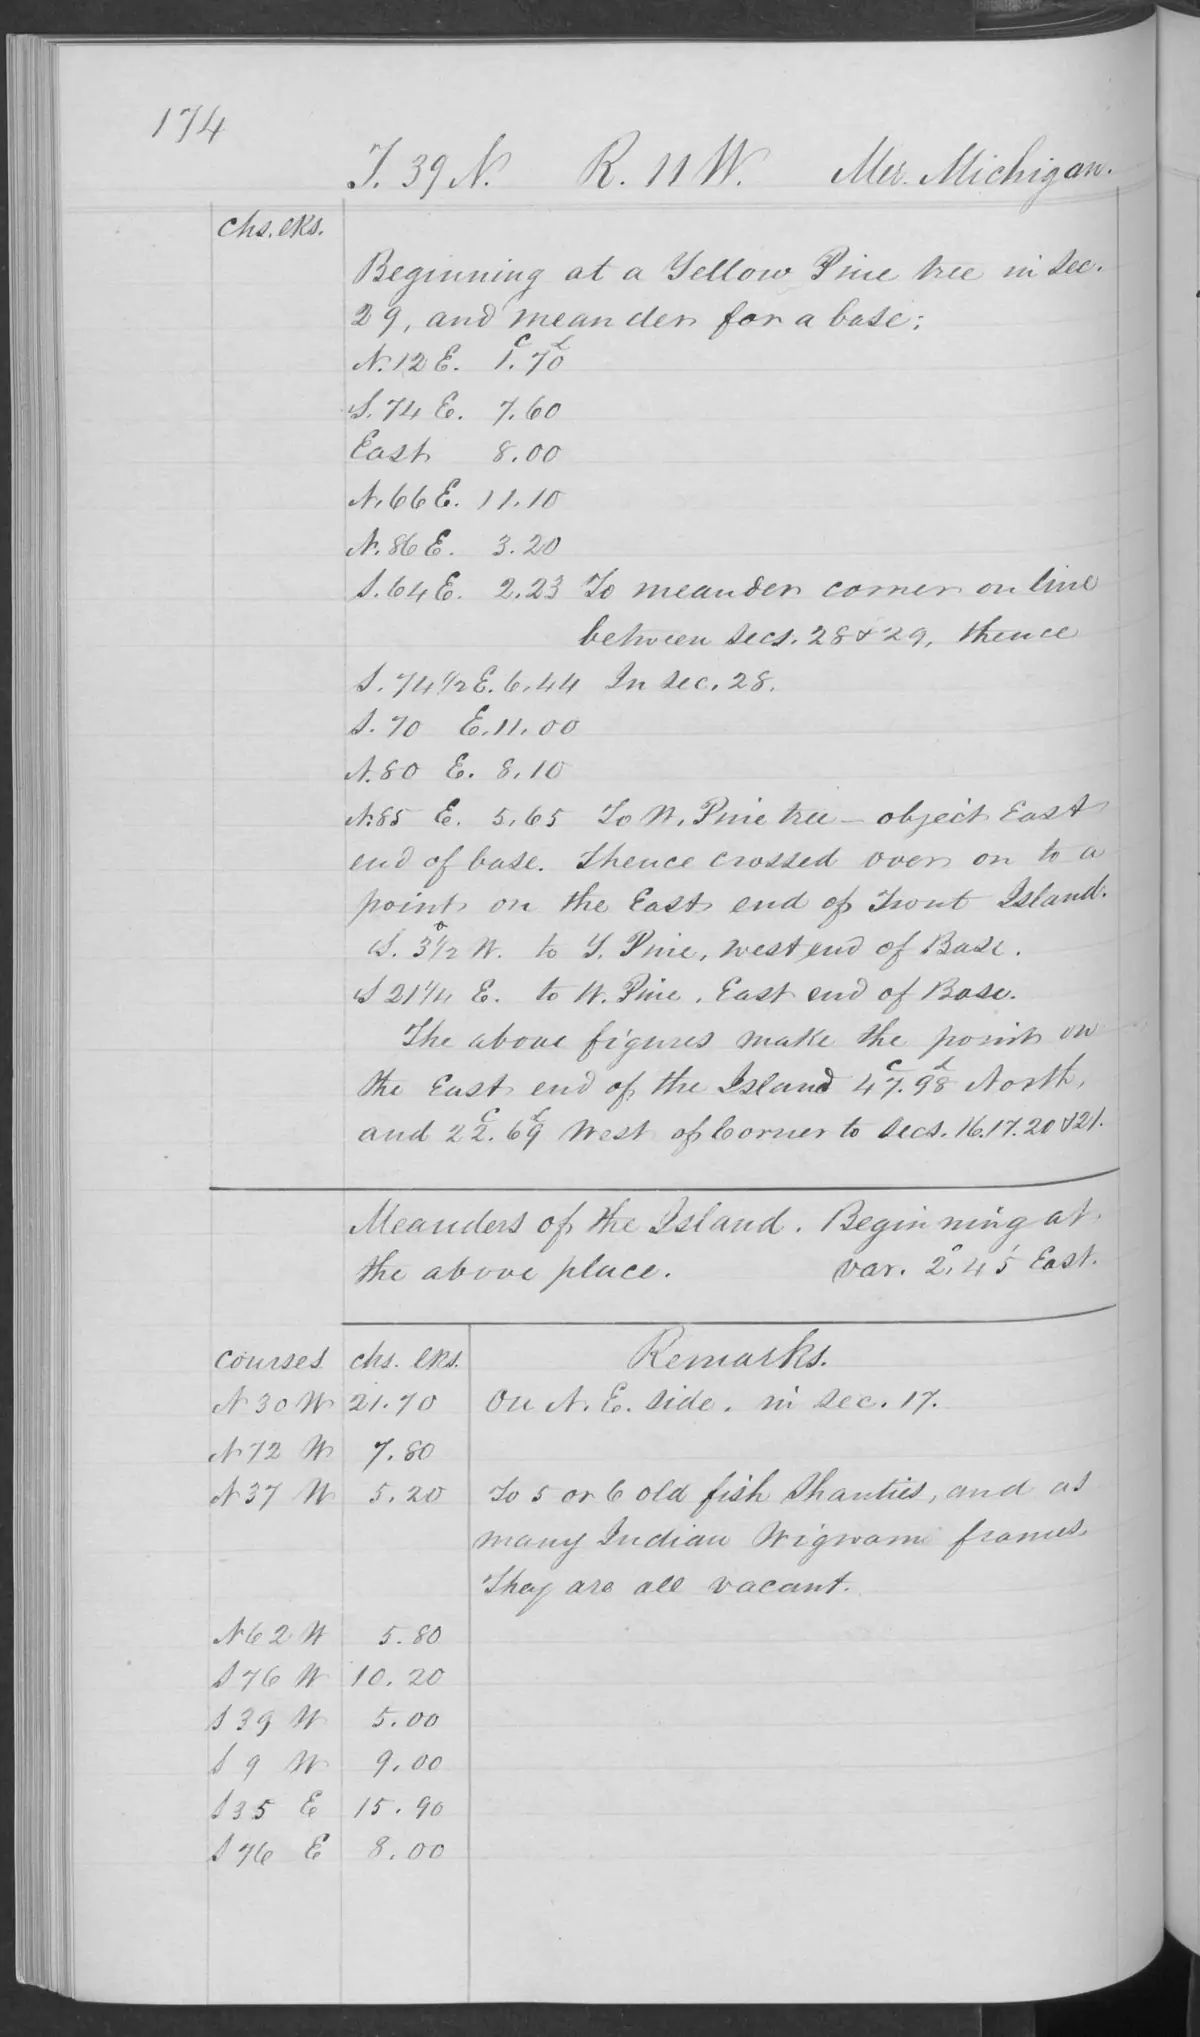 174
T. 39 N. R. 11 W. Mer. Michigan.
Chs. lks.
Beginning at a Yellow Pine tree in Sec.
29, and meander for a base;
N. 12 E. 1.c 70l
S. 74 E. 7.60
East 8.00
N. 66 E. 11.10
N. 86 E. 3.20
S. 64 E. 2.23 To meander corner on line
between Secs. 28 & 29, thence
S. 74 1/2 E. 6.44 In Sec. 28.
S. 70 E. 11.00
N. 80 E. 8.10
N. 85 E. 5.65 To W. Pine tree – object East
end of base. Thence crossed over on to a
point on the East end of Trout Island.
S. 3°1/2 W. to Y. Pine, West end of Base.
S 21 1/4 E. to W. Pine, East end of Base.
The above figures make the point on
the East end of the Island 47.c 98l North,
and 22.c 69l West of Corner to Secs. 16.17.20 & 21.
Meanders of the Island. Beginning at
the above place. Var. 2°,45' East.
Courses chs. lks. Remarks.
N 30 W 21.70 On N. E. side, in Sec. 17.
N 72 W 7.80
N 37 W 5.20 To 5 or 6 old fish Shanties, and as
many Indian Wigwam frames.
They are all vacant.
N 62 W 5.80
S 76 W 10.20
S 39 W 5.00
S 9 W 9.00
S 35 E 15.90
S 76 E 8.00